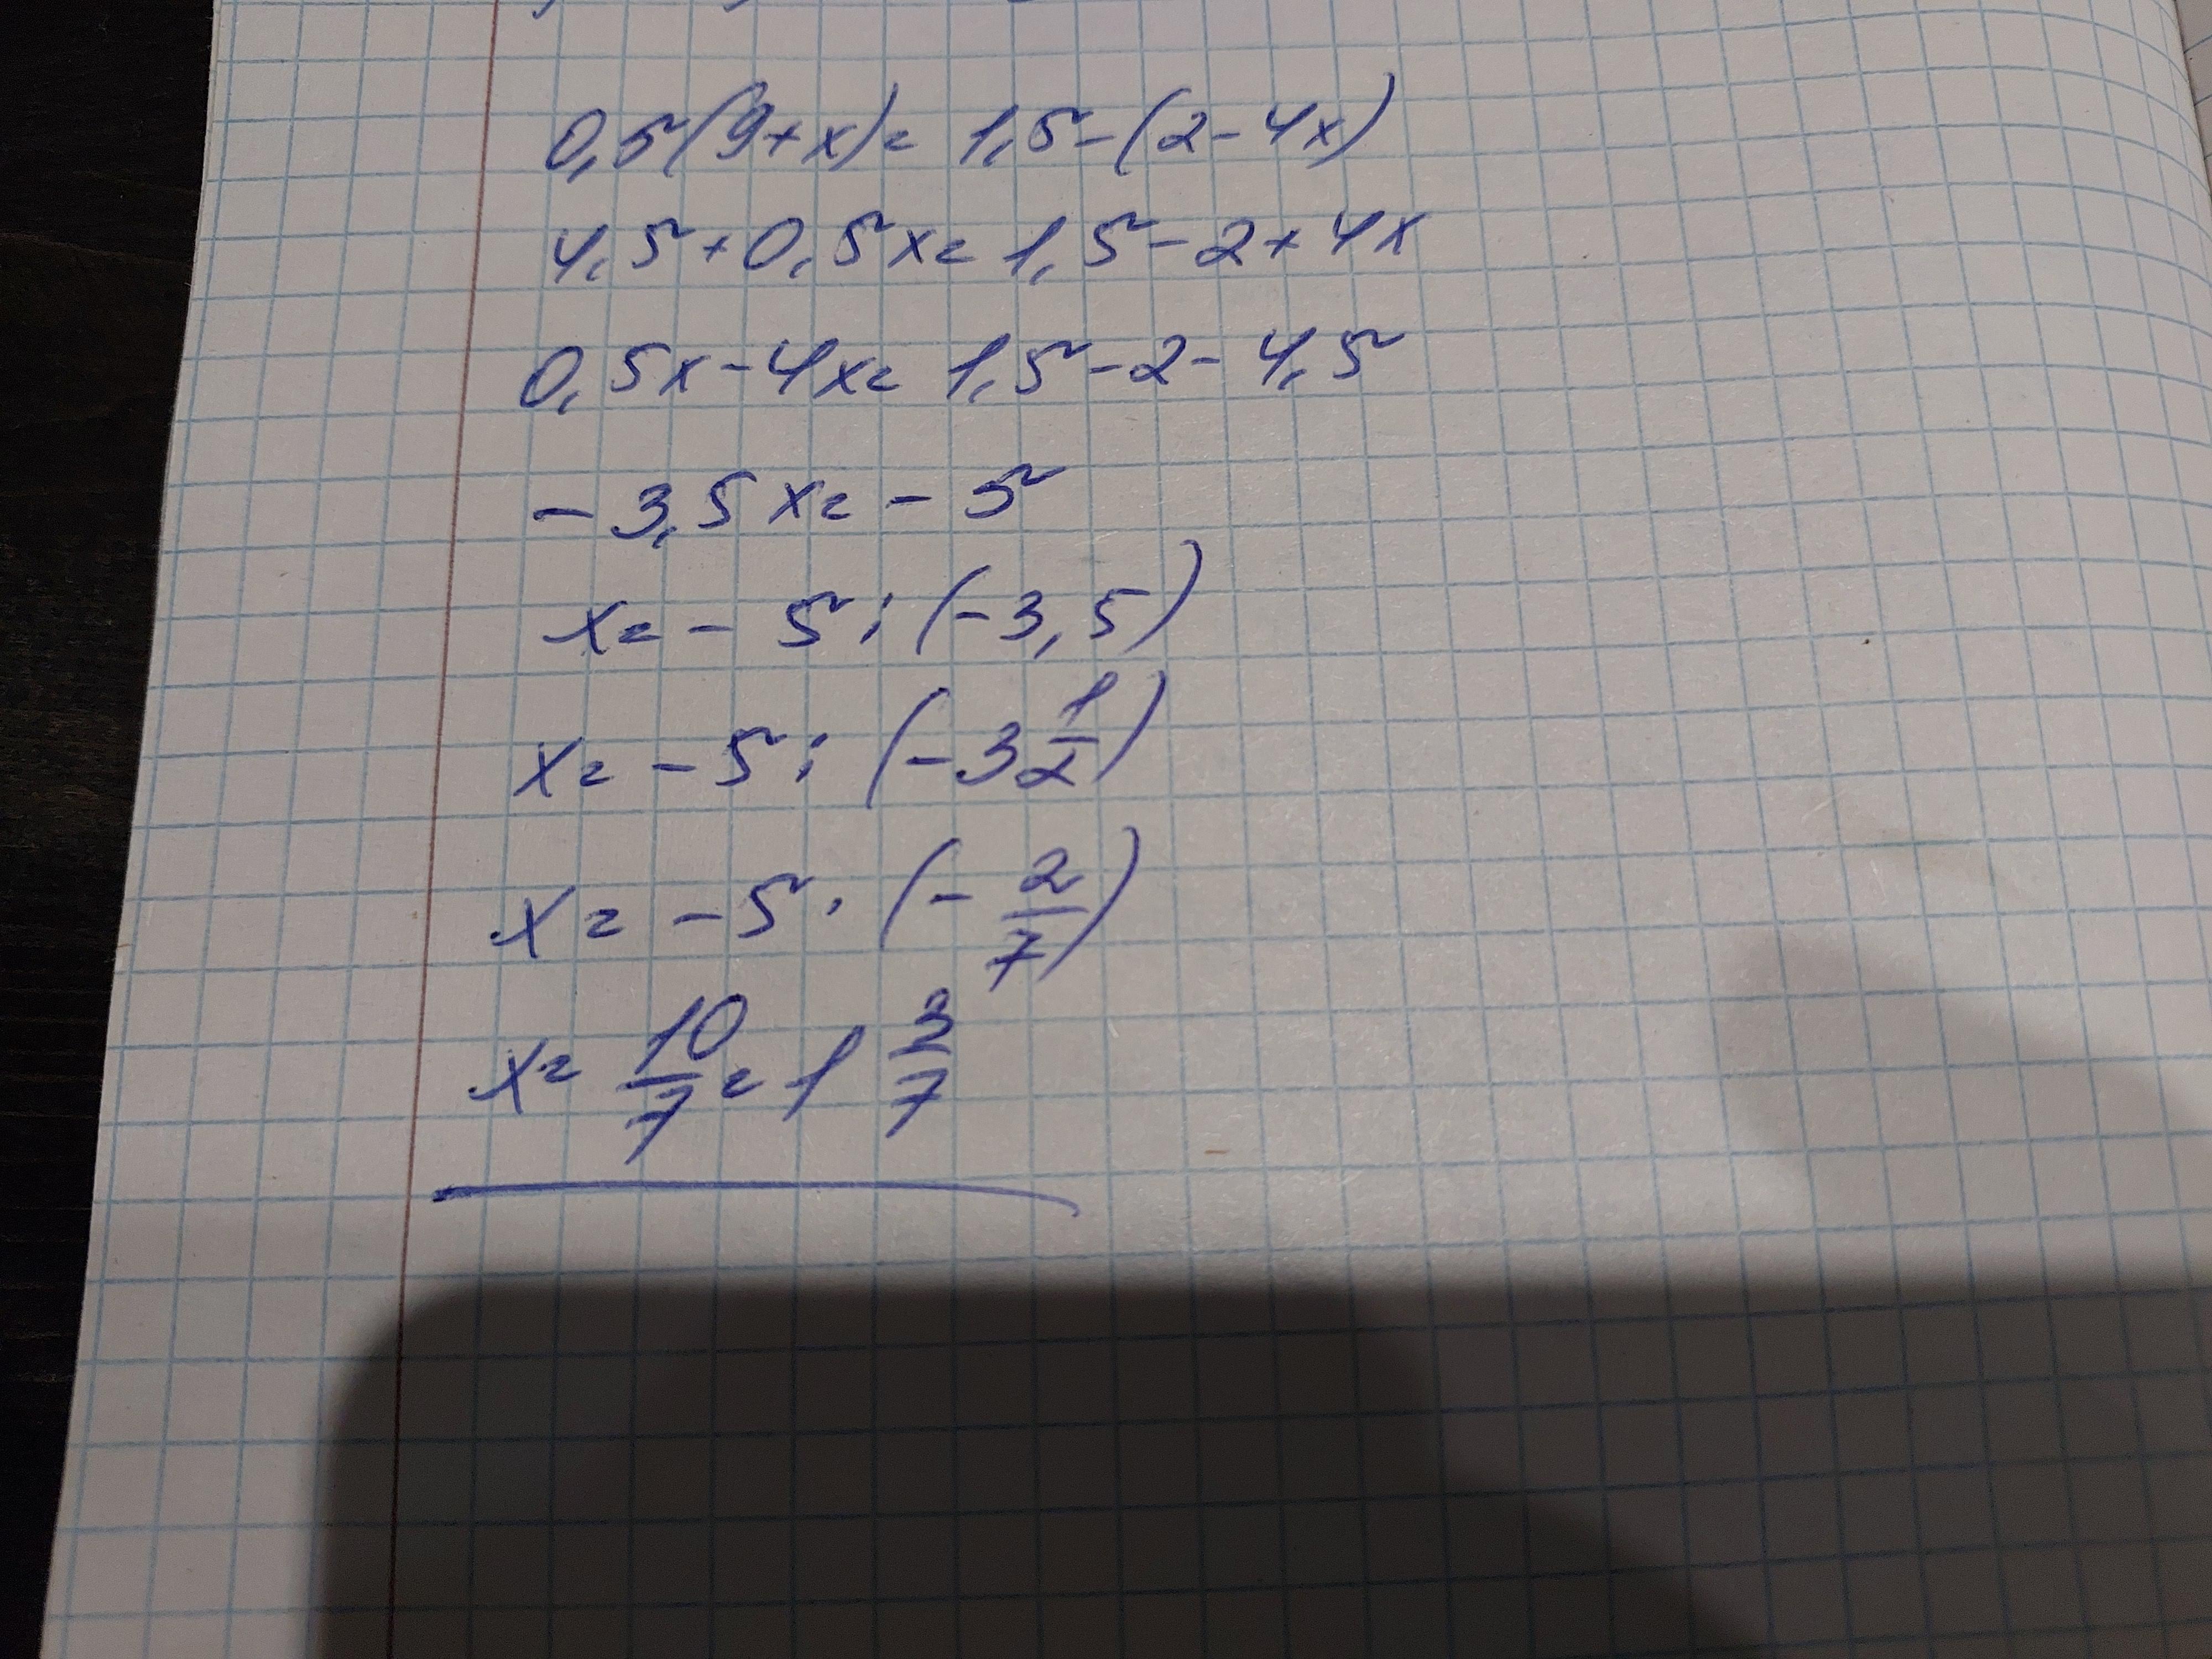 0,5(9+x)=1,5-(2-4x)
4,5+0,5x=1,5-2+4x
0,5x-4x=1,5-2-4,5
-3,5x=-5
x=-5:(-3,5)
x=-5:(-3 1/2)
x=-5·(-2/7)
x=10/7=1 3/7